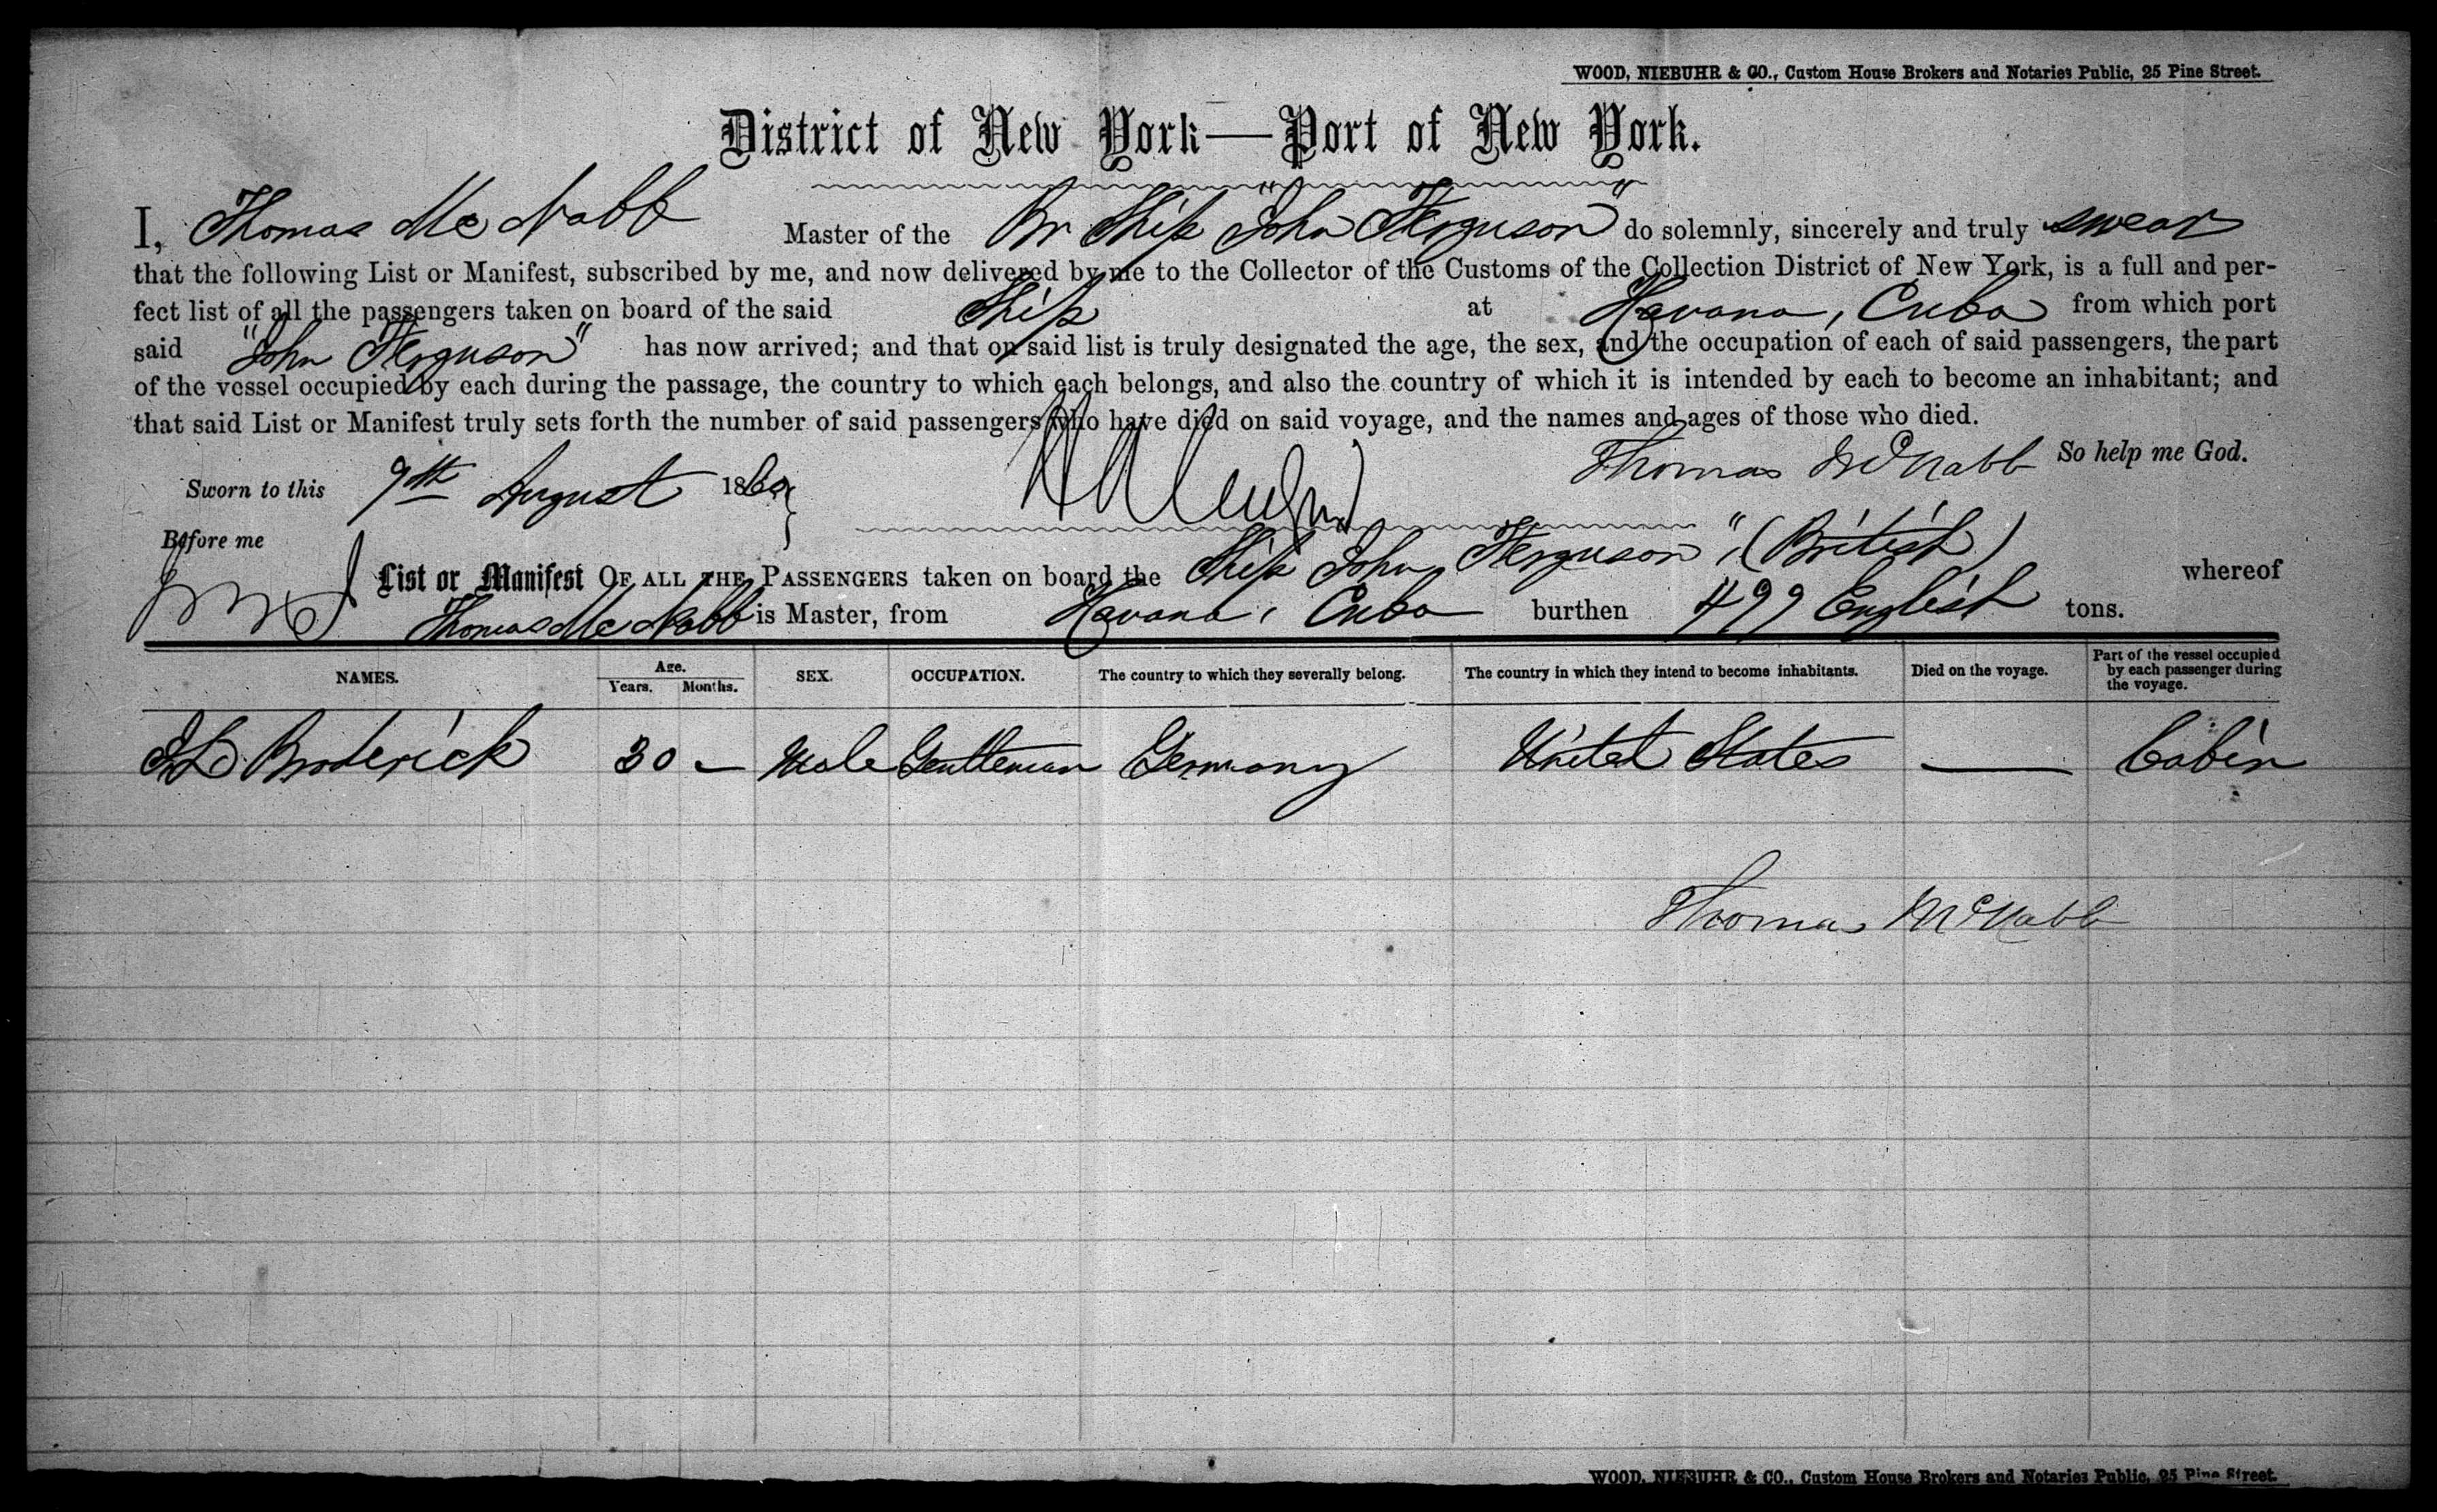 WOOD, NIEBUHR & CO., Custom House Brokers and Notaries Public, 25 Pine Street.
District of New York—Port of New York.
I, Thomas Mc Nabb Master of the Br Ship "John Ferguson" do solemnly, sincerely and truly swear
that the following List or Manifest, subscribed by me, and now delivered by me to the Collector of the Customs of the Collection District of New York, is a full and per-
fect list of all the passengers taken on board of the said Ship at Havana, Cuba from which port
said "John Ferguson" has now arrived; and that on said list is truly designated the age, the sex, and the occupation of each of said passengers, the part
of the vessel occupied by each during the passage, the country to which each belongs, and also the country of which it is intended by each to become an inhabitant; and
that said List or Manifest truly sets forth the number of said passengers who have died on said voyage, and the names and ages of those who died.
Thomas McNabb So help me God.
Sworn to this 9th August 1860
Before me
List or Manifest OF ALL THE PASSENGERS taken on board the Ship John Ferguson", (British) whereof
Thomas Mc Nabb is Master, from Havana, Cuba burthen 499 English tons.
NAMES. Age. Years. Months. SEX. OCCUPATION. The country to which they severally belong. The country in which they intend to become inhabitants. Died on the voyage. Part of the vessel occupied by each passenger during the voyage.
Broderick 30 — Male Gentleman Germany United States — Cabin
Thomas McNabb
WOOD, NIEBUHR & CO., Custom House Brokers and Notaries Public, 25 Pine Street.